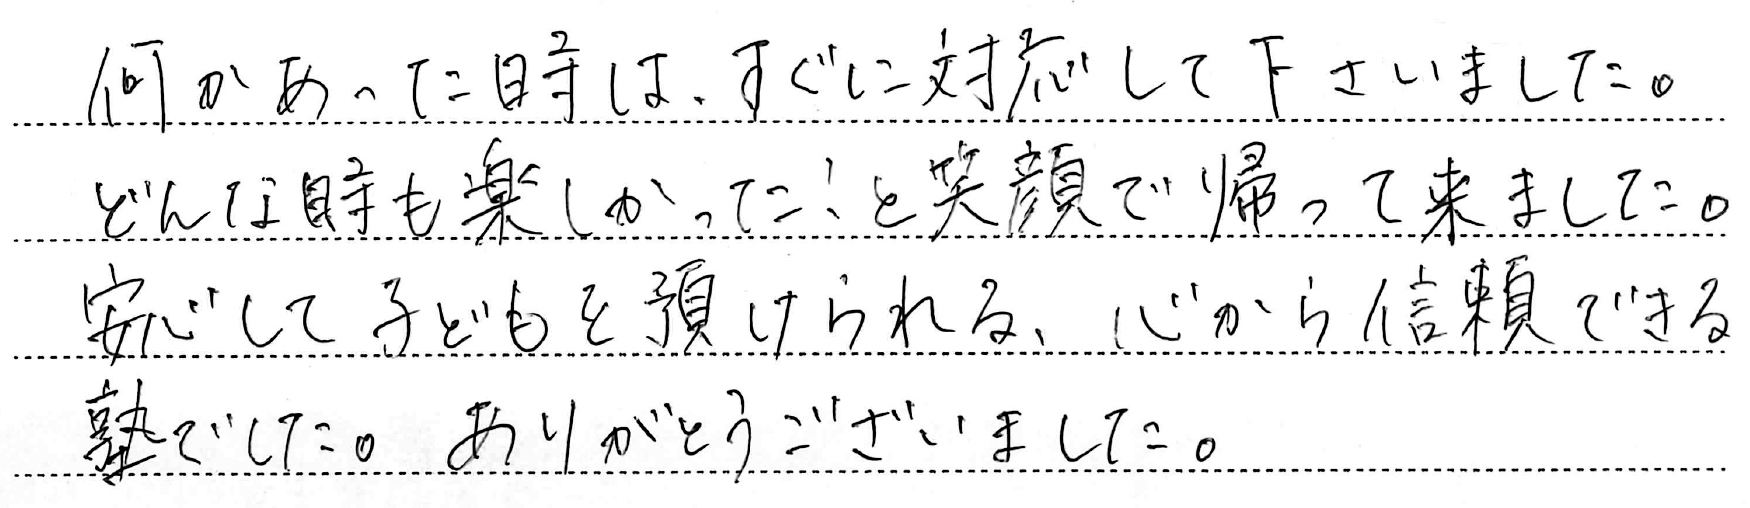 何かあった時は、すぐに対応して下さいました。
どんな時も楽しかった!と笑顔で帰って来ました。
安心して子どもを預けられる、心から信頼できる
塾でした。ありがとうございました。